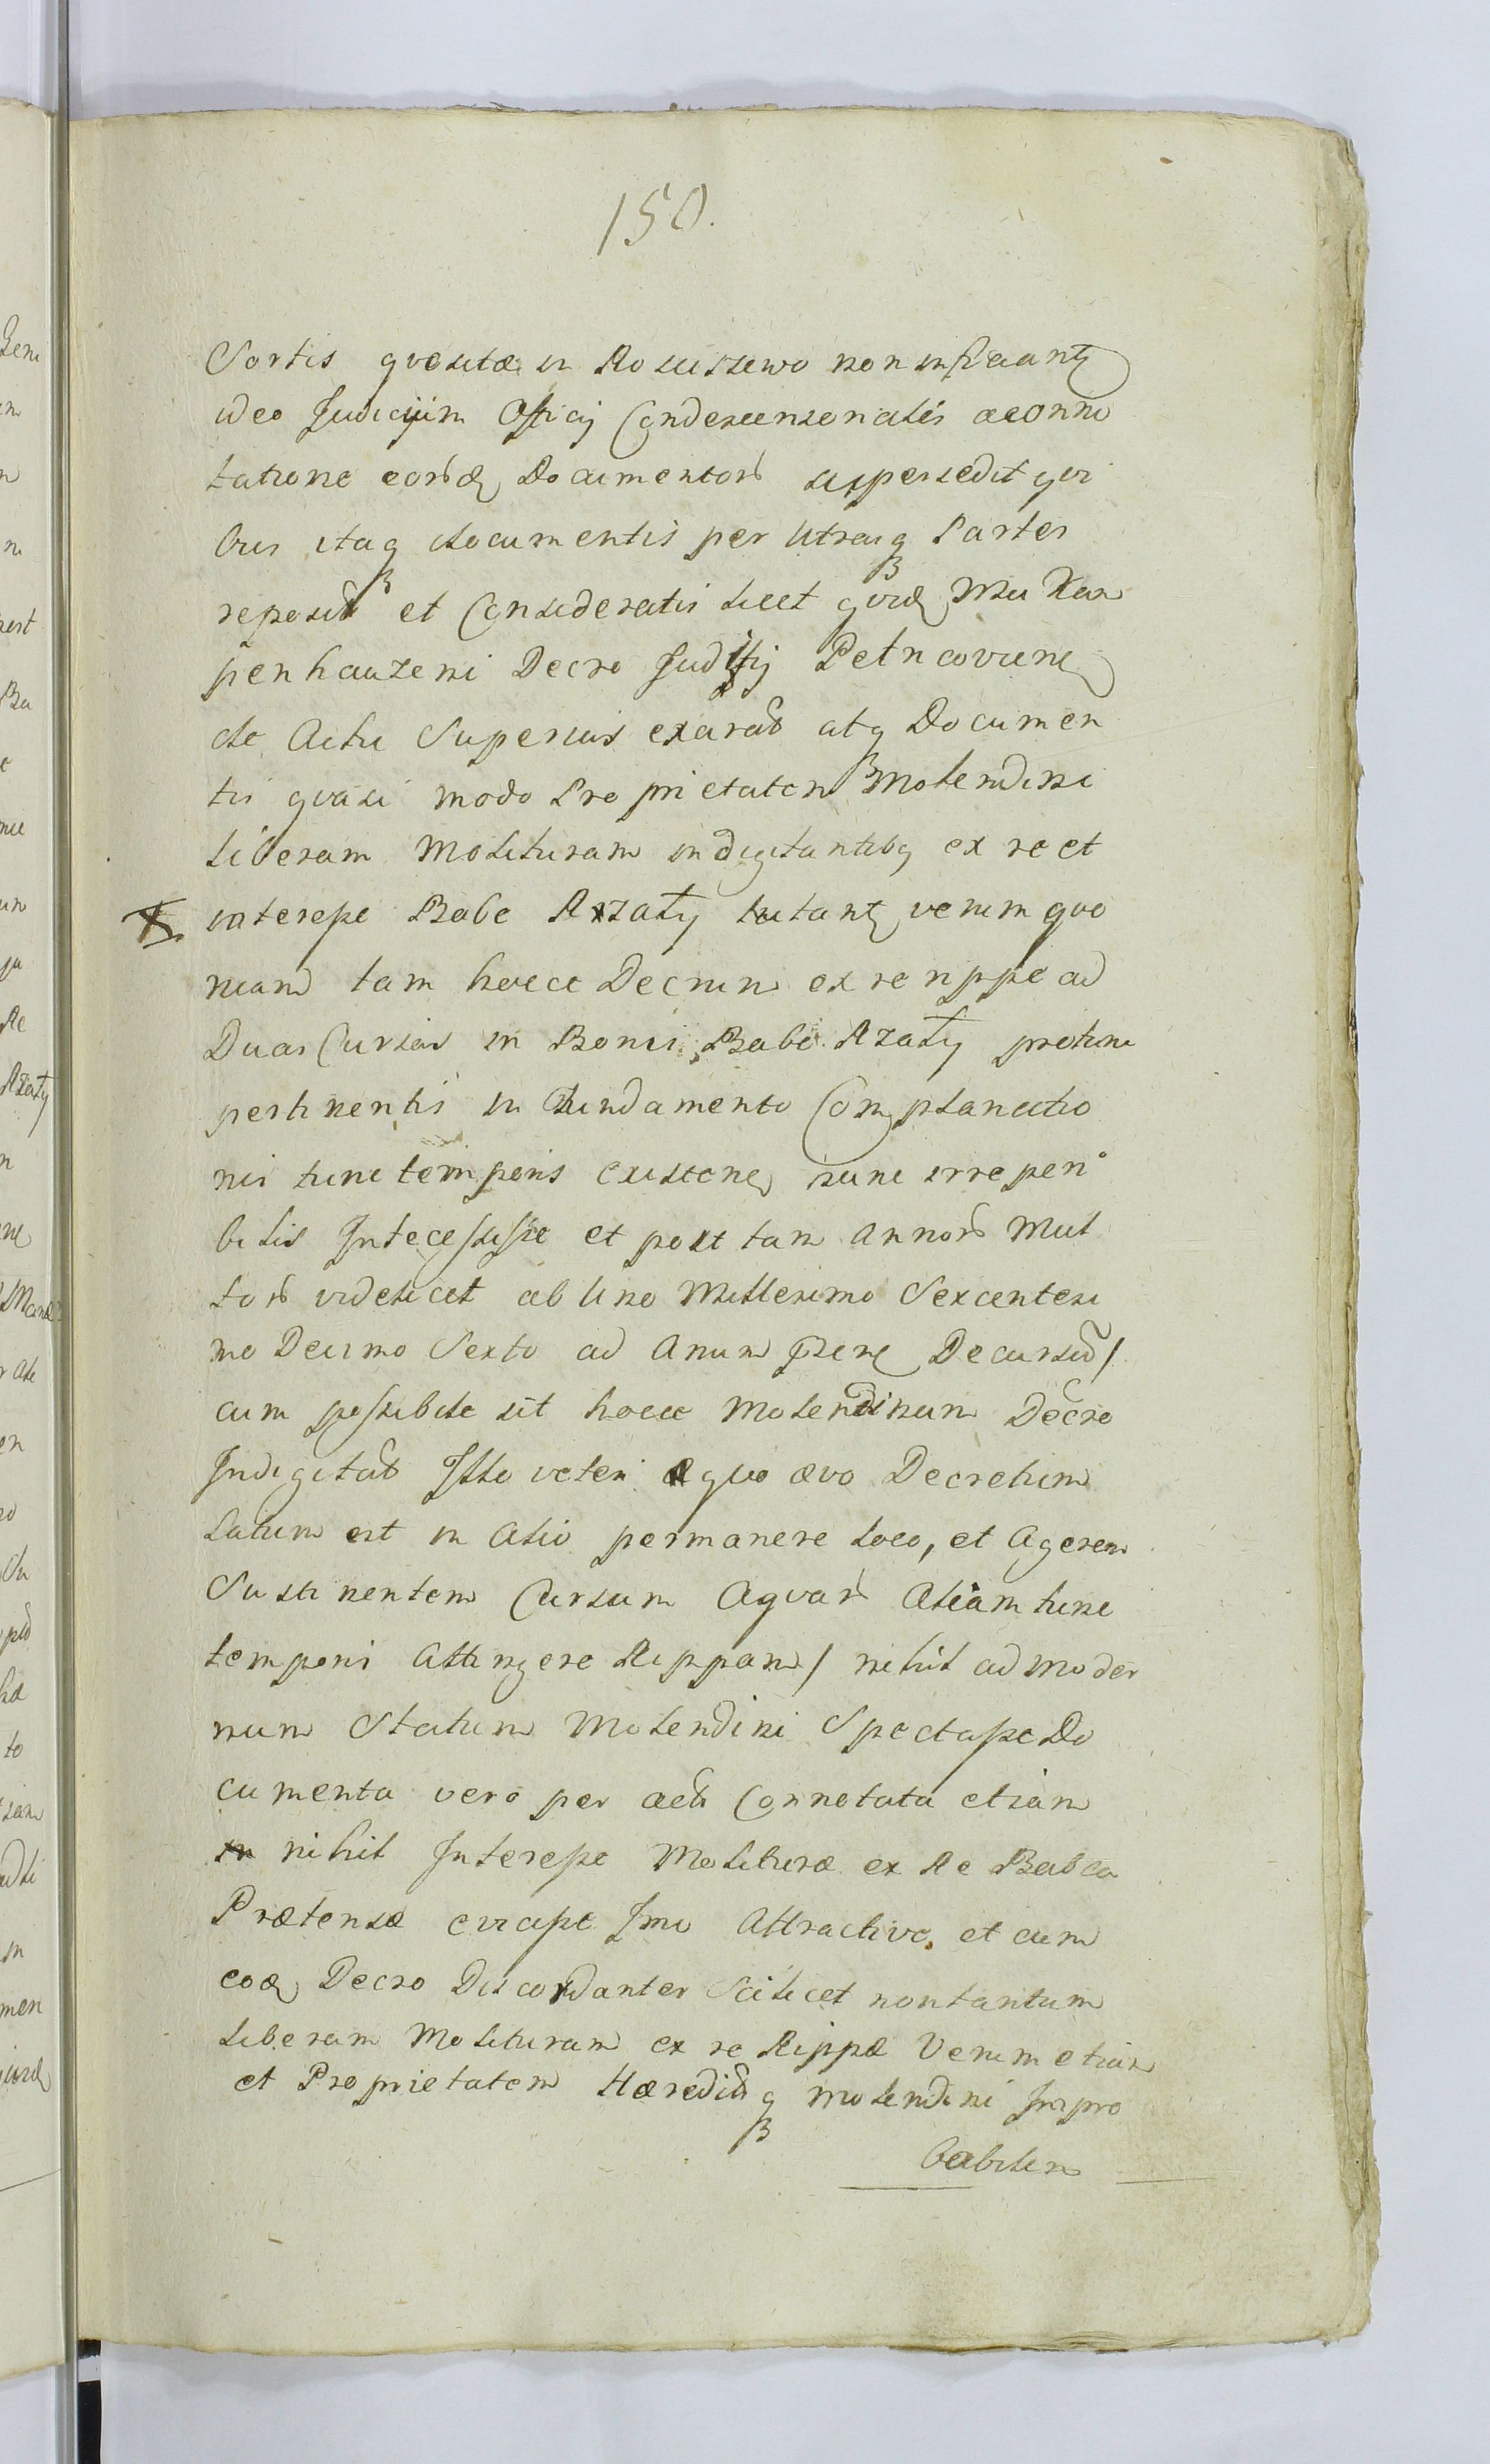 150.
Sortis quesitæ in Rosciszewo non
ideo Judicium Officij Condescensionalis a conno
tatione eord Documentor supersedit qvi
bus itaq documentis per Utramq Partes
reposit et Consideratis licet qvid
penhauzeni Decro Judicij Petricovien
de Actu Superius exarat atq Documen
tis qvasi modo Proprietatem Molendini
liberam Molituram indigitantibq ex re et
interesse Babe Rzaty verum qvo
niam tam hocce Decrum ex re rippe ad
Duas Curias in Bonis Babi Rzaty protunc
pertinentis in fundamento Complanatio
nis tunc temporis existenc nunc irreperi
bilis Intecessisse et post tam annor Mul
tor videlicet ab Uno Millesimo Sexcentesi
mo Decimo Sexto ad Anum Decursu /
cum possibile sit hocce Molendinum Decro
Indigitat Illo veteri qvo ævo Decretum
Latum est in Alio permanere loco, et Agerem
Sustinentem Cursum Aqvar Aliam tunc
temporis Attingere Rippam / nihil ad moder
num Statum Molendini Spectasse Do
cumenta vero per connotata etiam
nihil Interesse Molituræ ex Re Babca
Prætensæ evicisse Imo Attractive et cum
eod Decro Discordanter Scilicet non tantum
Liberam Molituram ex re Rippæ Verum etiam
et Proprietatem Molendini Impro
babilem